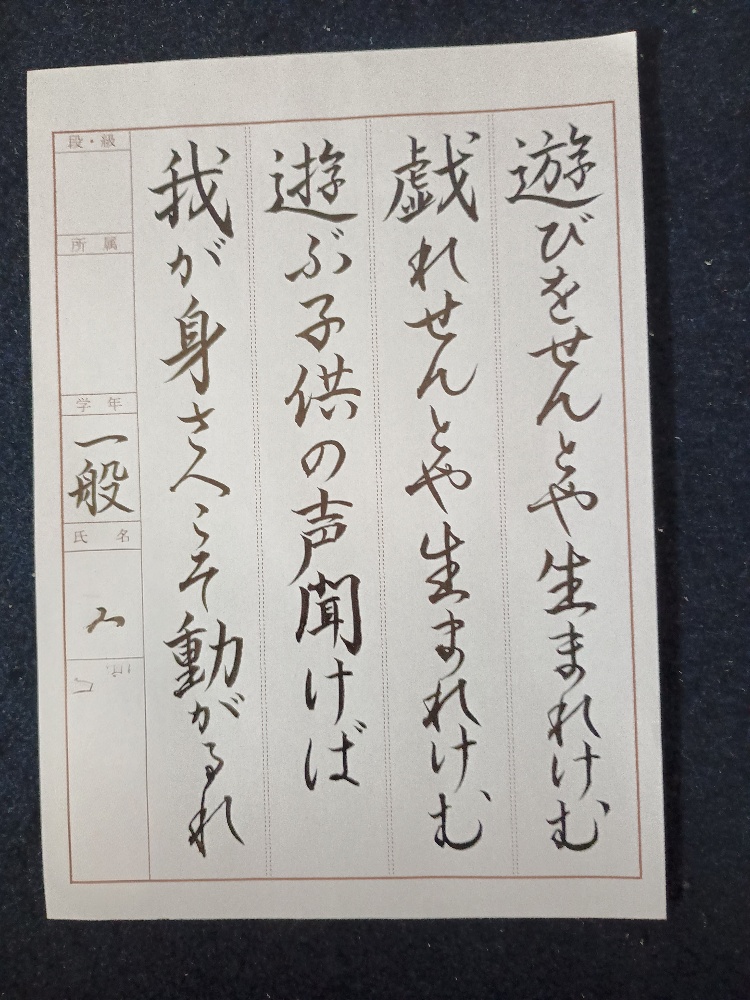 遊びをせんとや生まれけむ
戯れせんとや生まれけむ
遊ぶ子供の声聞けば
我が身さへこそ動がるれ
段・級
所属
学年
一般
氏名